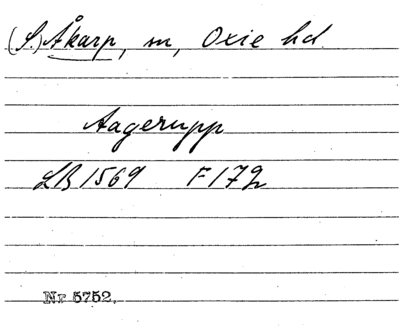 (S.) Åkarp, sn, Oxie hd.
Aagerupp
LB 1569 F 172
Nr 5752.